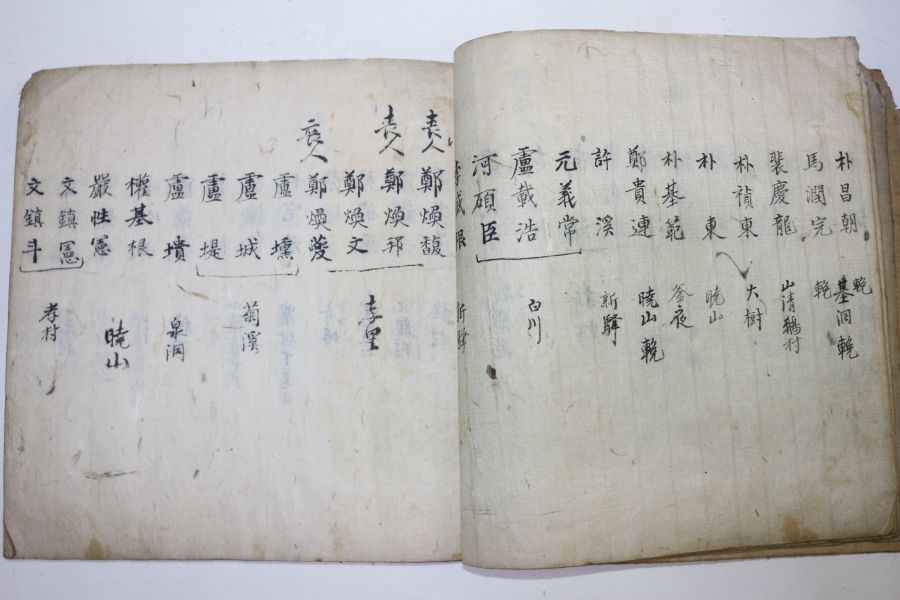 朴昌朝 基洞 輓 輓
馬潤完 輓
裴慶龍 山清 鵝村
朴禎東 大樹
朴東 曉山
朴基範 釜夜
鄭貴連 曉山 輓
許溪 新驛
元義常
盧載浩 白川
河碩臣
根 新驛
喪人 鄭煥馥
喪人 鄭煥邦 孝里
鄭煥文
喪人 鄭煥
盧壎
盧城 菊溪
盧堤
盧墳 泉洞
權基根
嚴性憲 曉山
文鎮憲
文鎮斗 孝村